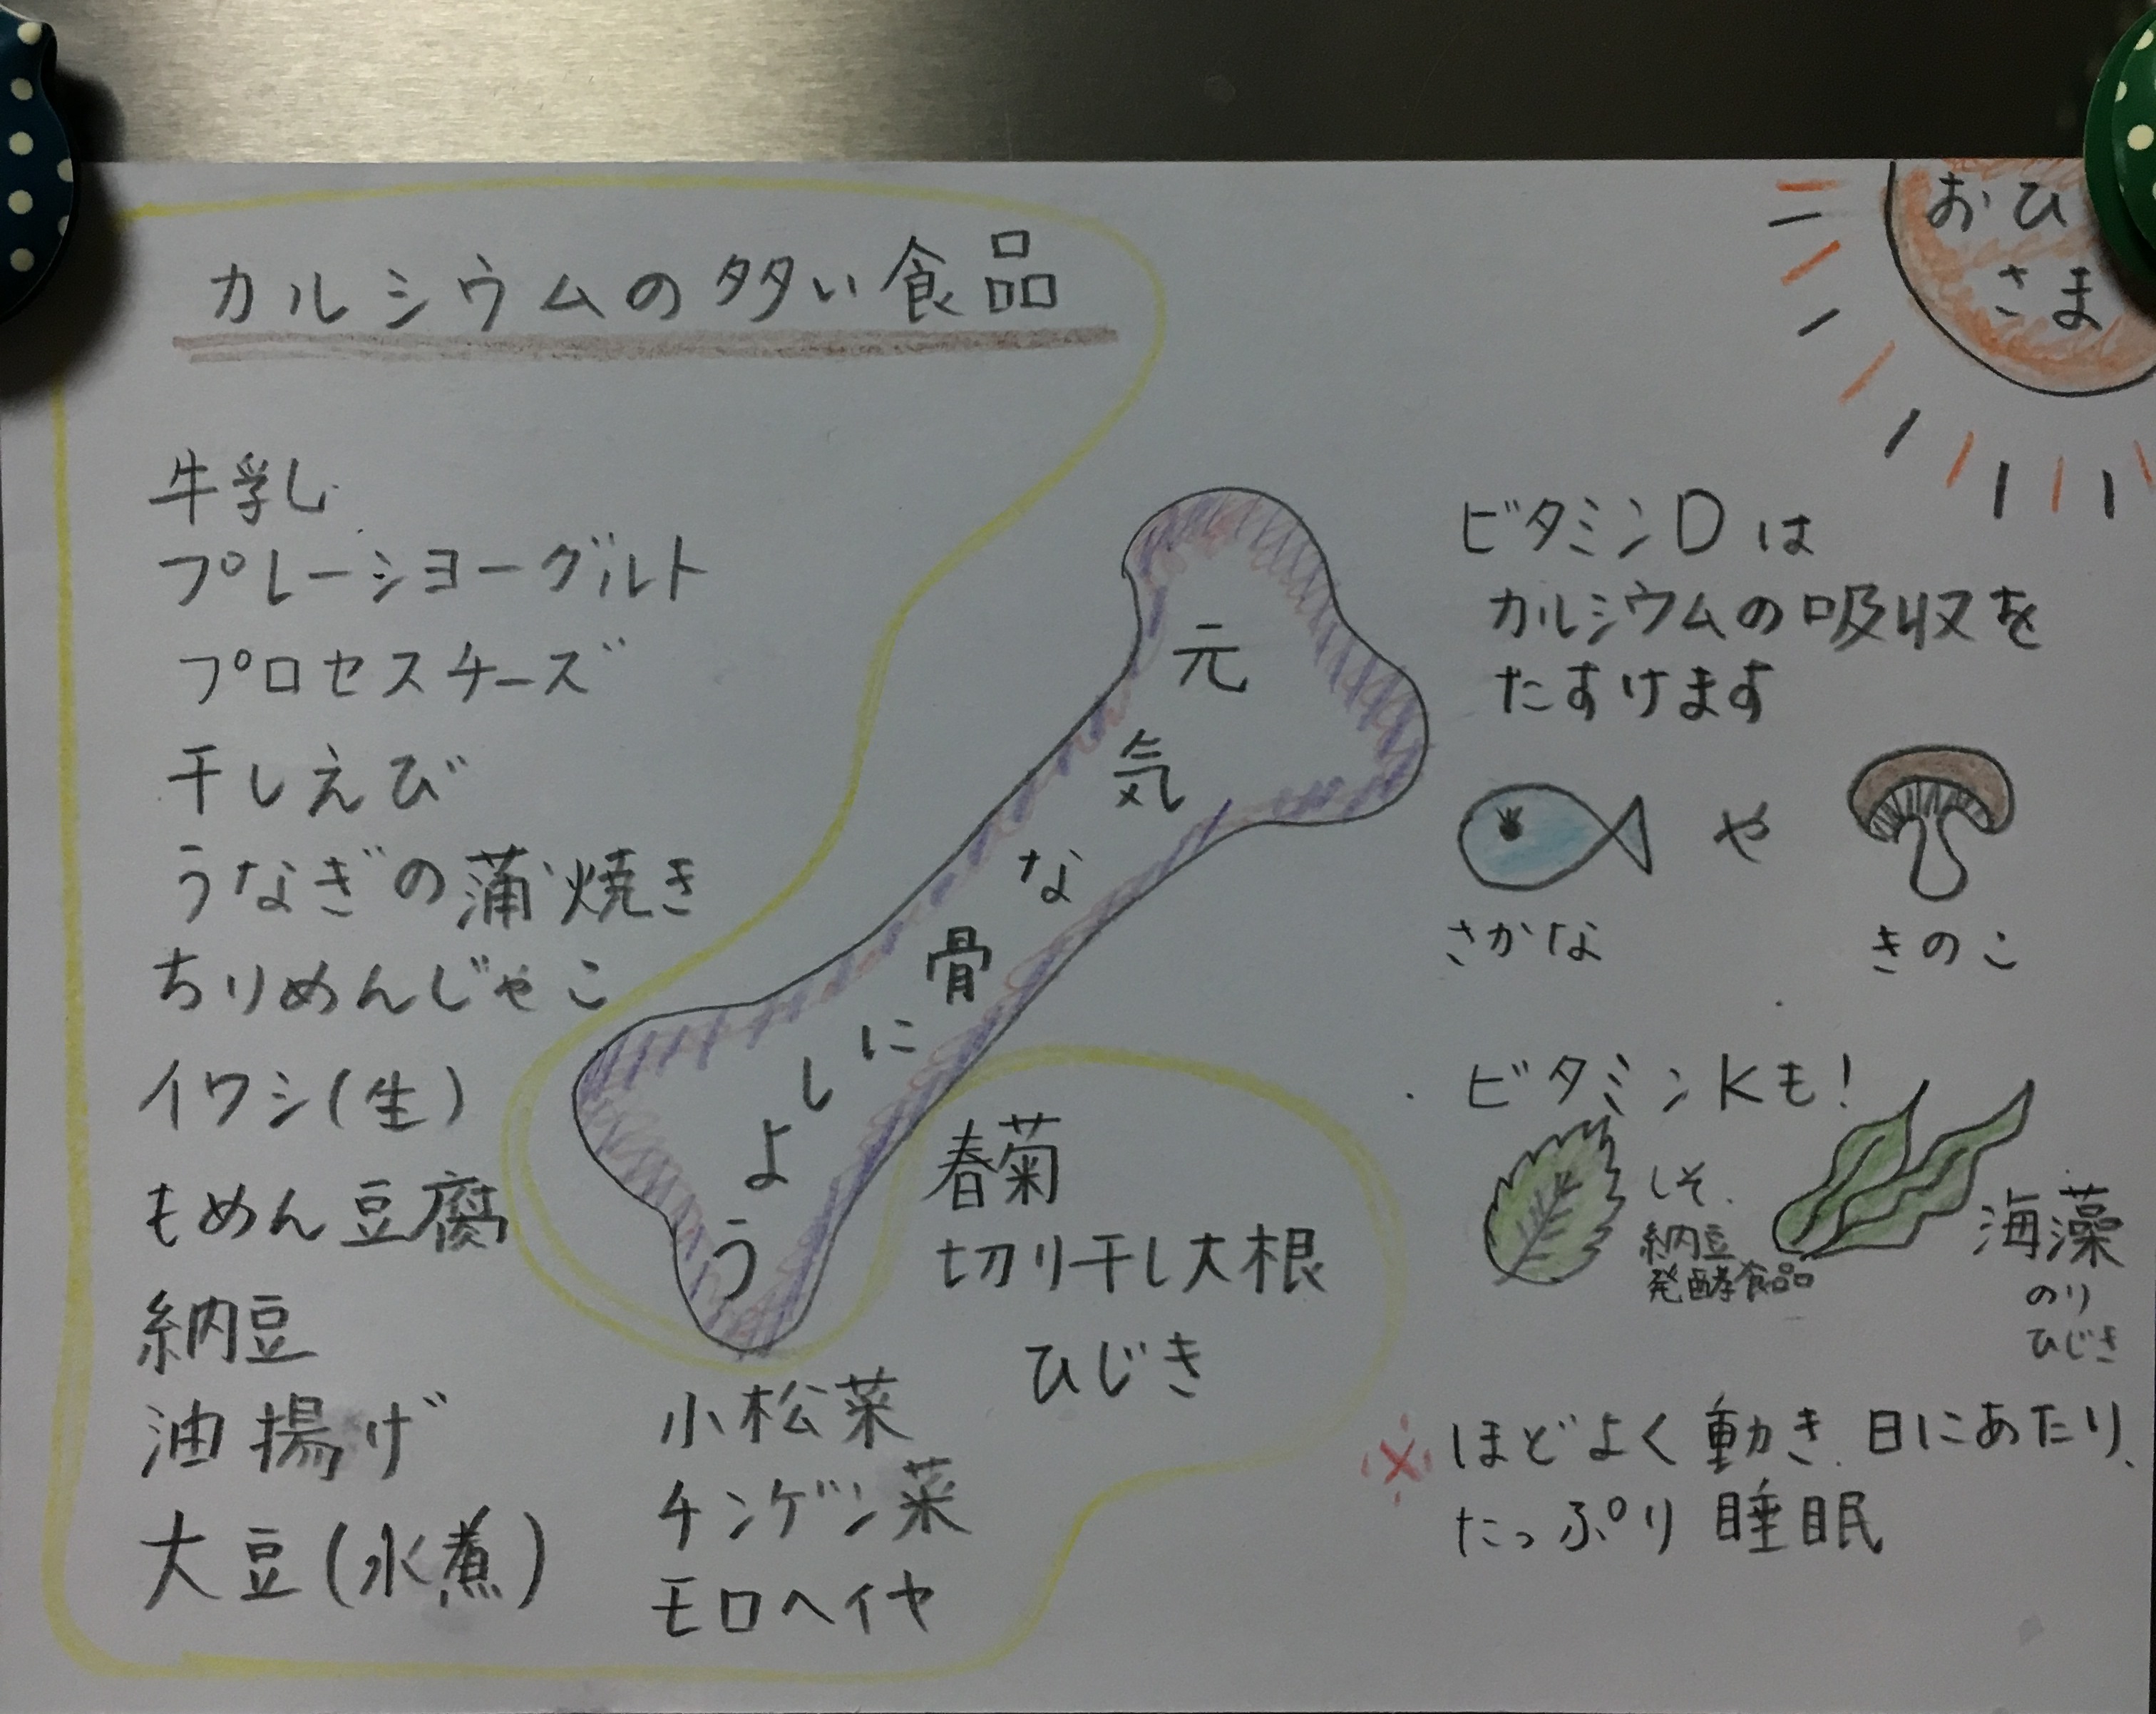 カルシウムの多い食品
牛乳
プレーンヨーグルト
プロセスチーズ
干しえび
うなぎの蒲焼き
ちりめんじゃこ
イワシ(生)
もめん豆腐
納豆
油揚げ
大豆(水煮)
小松菜
チンゲン菜
モロヘイヤ
春菊
切り干し大根
ひじき
元気な骨にしよう
おひ
さま
ビタミンDは
カルシウムの吸収を
たすけます
や
さかな
きのこ
ビタミンKも!
しそ、
納豆
発酵食品
海藻
のり
ひじき
※ほどよく動き、日にあたり、
たっぷり睡眠